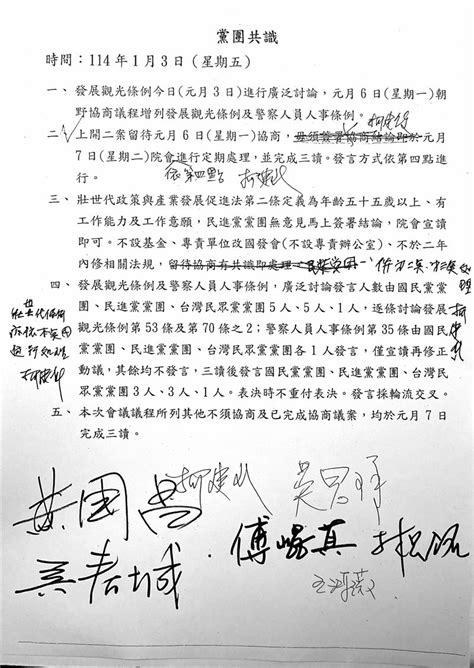 黨團共識
時間：114年1月3日(星期五)
一、發展觀光條例今日(元月3日)進行廣泛討論，元月6日(星期一)朝
野協商議程增列發展觀光條例及警察人員人事條例。
柯建銘
二、上開二案留待元月6日(星期一)協商，毋須簽署協商結論即於元月
7日(星期二)院會進行定期處理，並完成三讀。發言方式依第四點進
行。
依第四點 柯建銘
三、壯世代政策與產業發展促進法第二條定義為年齡五十五歲以上、有
工作能力及工作意願，民進黨黨團無意見馬上簽署結論，院會宣讀
即可。不設基金、專責單位改國發會(不設專責辦公室)、不於二年
內修相關法規，留待協商有共識即處理
四、發展觀光條例及警察人員人事條例，廣泛討論發言人數由國民黨黨
團、民進黨黨團、台灣民眾黨黨團5人、5人、1人，逐條討論發展
觀光條例第53條及第70條之2；警察人員人事條例第35條由國民
黨黨團、民進黨黨團、台灣民眾黨黨團各1人發言，僅宣讀再修正
動議，其餘均不發言，三讀後發言國民黨黨團、民進黨黨團、台灣民
眾黨黨團3人、3人、1人。表決時不重付表決。發言採輪流交叉。
壯世代條例
柯建銘
五、本次會議議程所列其他不須協商及已完成協商議案，均於元月7日
完成三讀。
黃國昌 柯建銘 吳思瑤
吳春城 傅崐萁 林思銘
王鴻薇